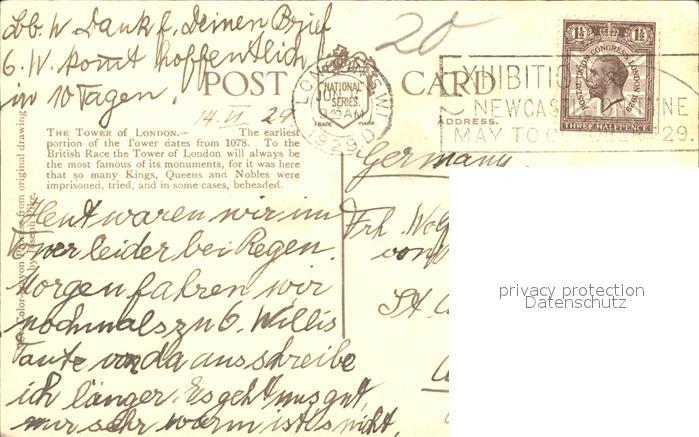 Lb. W Dank f. Deinen Brief
G. W. kommt hoffentlich
in 10 Tagen.
20
14. VI 29
POST CARD
NATIONAL
SERIES.
TRADE MARK
LONDON S.W.1
JUN
1929
EXHIBITION
NEWCASTLE TYNE
MAY TO OCTOBER 1929
1½ POSTAL UNION CONGRESS LONDON 1929 1½
THREE HALFPENCE
ADDRESS.
THE TOWER OF LONDON.— The earliest
portion of the Tower dates from 1078. To the
British Race the Tower of London will always be
the most famous of its monuments, for it was here
that so many Kings, Queens and Nobles were
imprisoned, tried, and in some cases, beheaded.
Color-Crayon Process from original drawing
by Joseph Pike.
Heut waren wir im
Tower leider bei Regen.
Morgen fahren wir
nochmals zu G. Willis
Tante von da aus schreibe
ich länger. Es geht uns gut,
nur sehr warm ist's nicht.
Germany
Frh. Wolf
von
St
privacy protection
Datenschutz